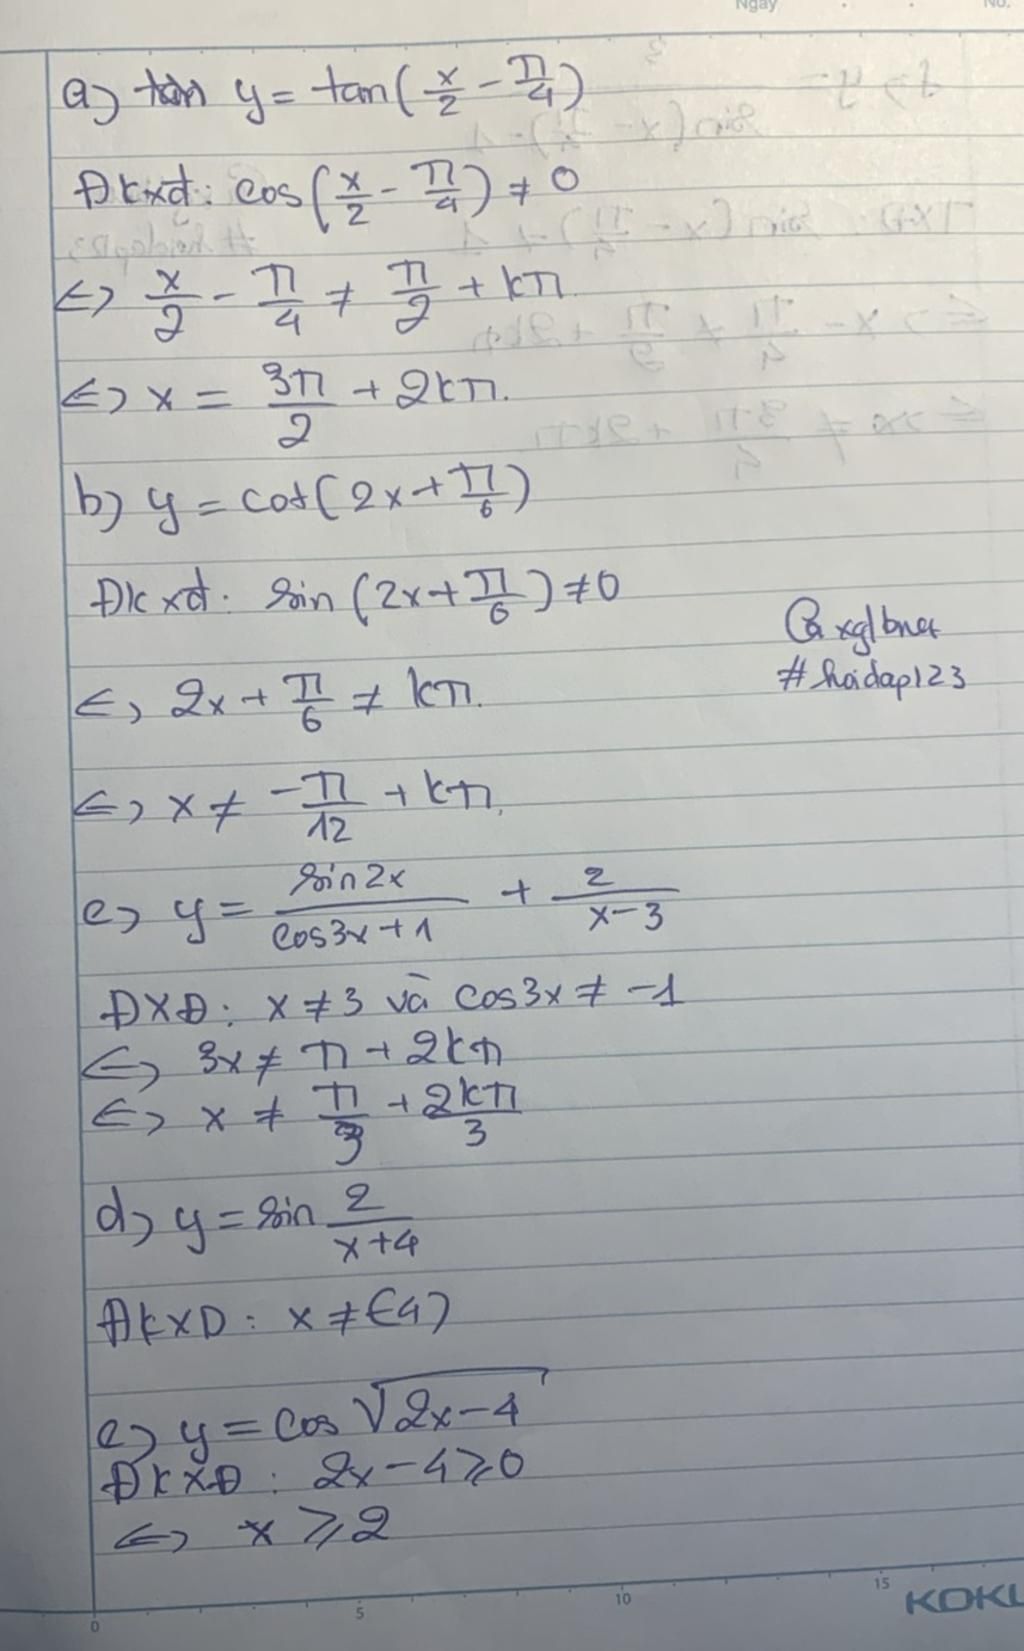 Ngày
No.
a) tan y = tan(x/2 - π/4)
Đkxđ: cos(x/2 - π/4) ≠ 0
<=> x/2 - π/4 ≠ π/2 + kπ
<=> x = 3π/2 + 2kπ.
b) y = cot(2x + π/6)
Đkxđ: sin(2x + π/6) ≠ 0
<=> 2x + π/6 ≠ kπ.
<=> x ≠ -π/12 + kπ,
c) y = sin2x/(cos3x+1) + 2/(x-3)
ĐXĐ: x ≠ 3 và cos3x ≠ -1
<=> 3x ≠ π + 2kπ
<=> x ≠ π/3 + 2kπ/3
d) y = sin 2/(x+4)
ĐKXD: x ≠ (-4)
e) y = cos √(2x-4)
ĐKXĐ: 2x - 4 ≥ 0
<=> x ≥ 2
#hoidap123
0 5 10 15
KOKU